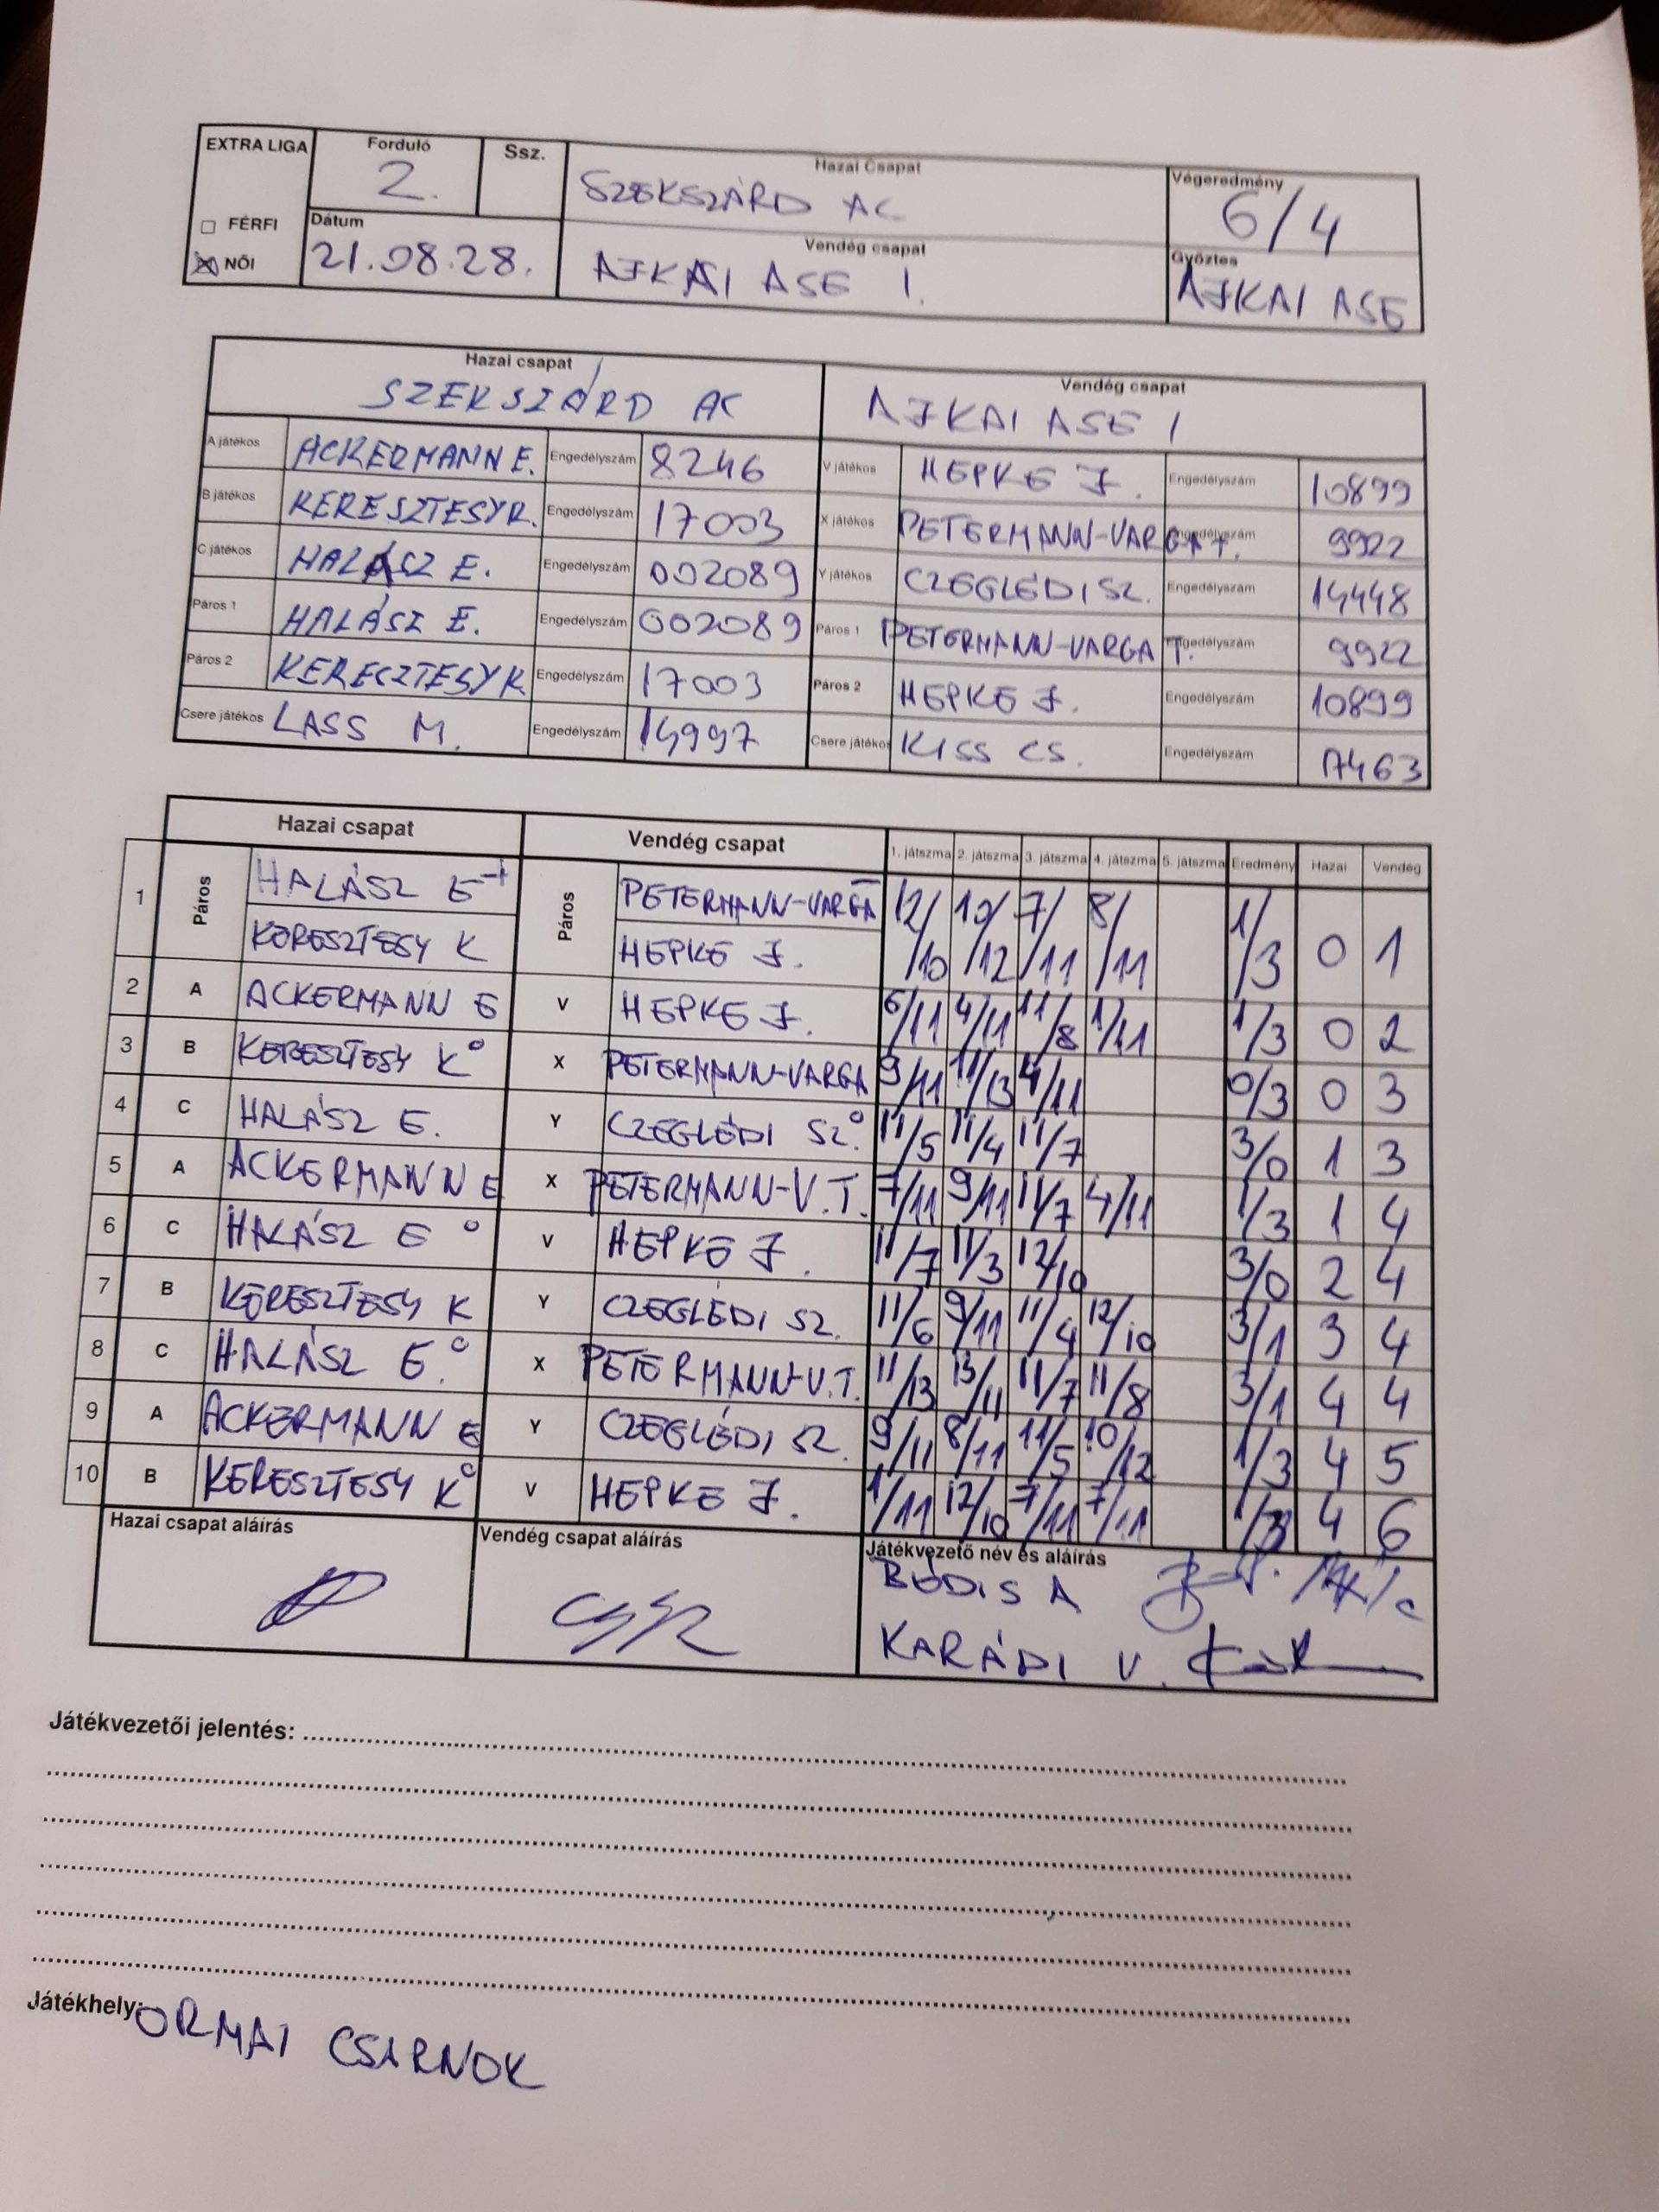 EXTRA LIGA Forduló Ssz. Hazai Csapat Végeredmény
2. SZEKSZÁRD AC 6/4
□ FÉRFI Dátum Vendég csapat Győztes
☒ NŐI 21.08.28. AJKAI ASE I. AJKAI ASE
Hazai csapat Vendég csapat
SZEKSZÁRD AC AJKAI ASE I
A játékos ACKERMANN E. Engedélyszám 8246 V játékos HEPKE J. Engedélyszám 10899
B játékos KERESZTESY K. Engedélyszám 17003 X játékos PETERMANN-VARGA T. Engedélyszám 9922
C játékos HALÁSZ E. Engedélyszám 002089 Y játékos CZEGLÉDI SZ. Engedélyszám 14448
Páros 1 HALÁSZ E. Engedélyszám 002089 Páros 1 PETERMANN-VARGA T. Engedélyszám 9922
Páros 2 KERESZTESY K. Engedélyszám 17003 Páros 2 HEPKE J. Engedélyszám 10899
Csere játékos LASS M. Engedélyszám 14997 Csere játékos KISS CS. Engedélyszám 17463
Hazai csapat Vendég csapat 1. játszma 2. játszma 3. játszma 4. játszma 5. játszma Eredmény Hazai Vendég
1 Páros HALÁSZ E Páros PETERMANN-VARGA 12/10 10/12 7/11 8/11 1/3 0 1
KERESZTESY K HEPKE J.
2 A ACKERMANN E V HEPKE J. 6/11 4/11 11/8 1/11 1/3 0 2
3 B KERESZTESY K X PETERMANN-VARGA 9/11 11/13 4/11 0/3 0 3
4 C HALÁSZ E. Y CZEGLÉDI SZ. 11/5 11/4 11/7 3/0 1 3
5 A ACKERMANN E X PETERMANN-V.T. 7/11 9/11 11/7 4/11 1/3 1 4
6 C HALÁSZ E V HEPKE J. 11/7 11/3 12/10 3/0 2 4
7 B KERESZTESY K Y CZEGLÉDI SZ. 11/6 9/11 11/4 12/10 3/1 3 4
8 C HALÁSZ E. X PETERMANN-V.T. 11/13 13/11 11/7 11/8 3/1 4 4
9 A ACKERMANN E Y CZEGLÉDI SZ. 9/11 8/11 11/5 10/12 1/3 4 5
10 B KERESZTESY K V HEPKE J. 1/11 12/10 7/11 7/11 1/3 4 6
Hazai csapat aláírás Vendég csapat aláírás Játékvezető név és aláírás
BÓDIS A
KARÁDI V.
Játékvezetői jelentés:
Játékhely: ORMAI CSARNOK